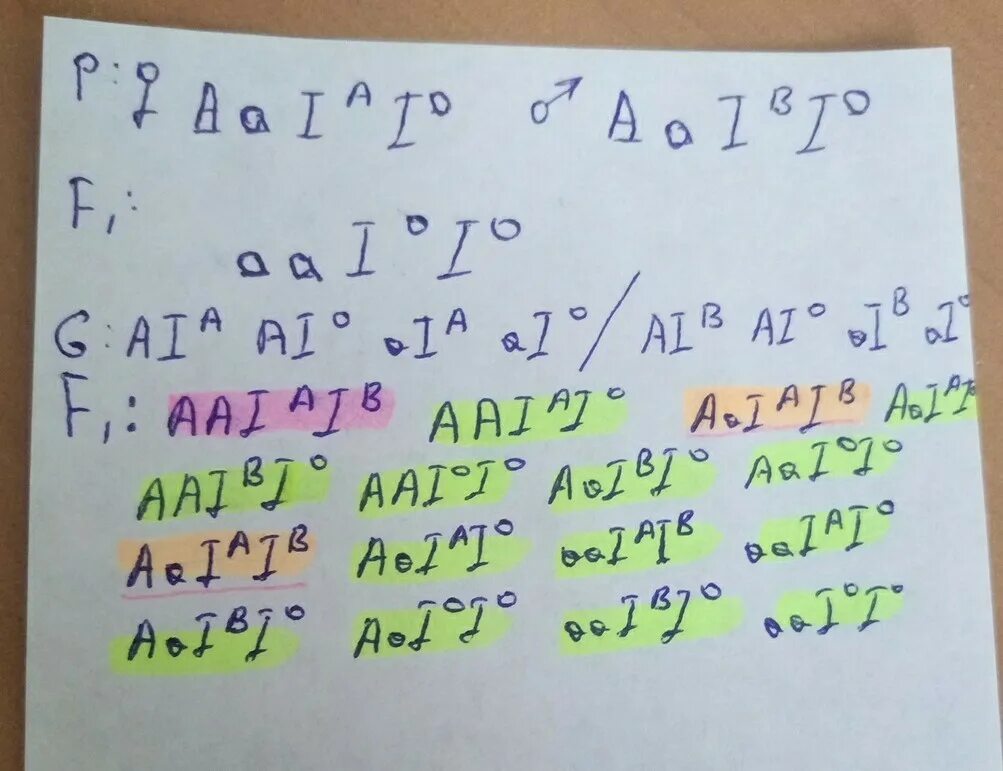 P: ♀ Aa I^A I^O ♂ Aa I^B I^O
F₁:
aa I^O I^O
G: AI^A AI^O aI^A aI^O / AI^B AI^O aI^B aI^O
F₁: AAI^AI^B AAI^AI^O AaI^AI^B AaI^AI^O
AAI^BI^O AAI^OI^O AaI^BI^O AaI^OI^O
AaI^AI^B AaI^AI^O aaI^AI^B aaI^AI^O
AaI^BI^O AaI^OI^O aaI^BI^O aaI^OI^O